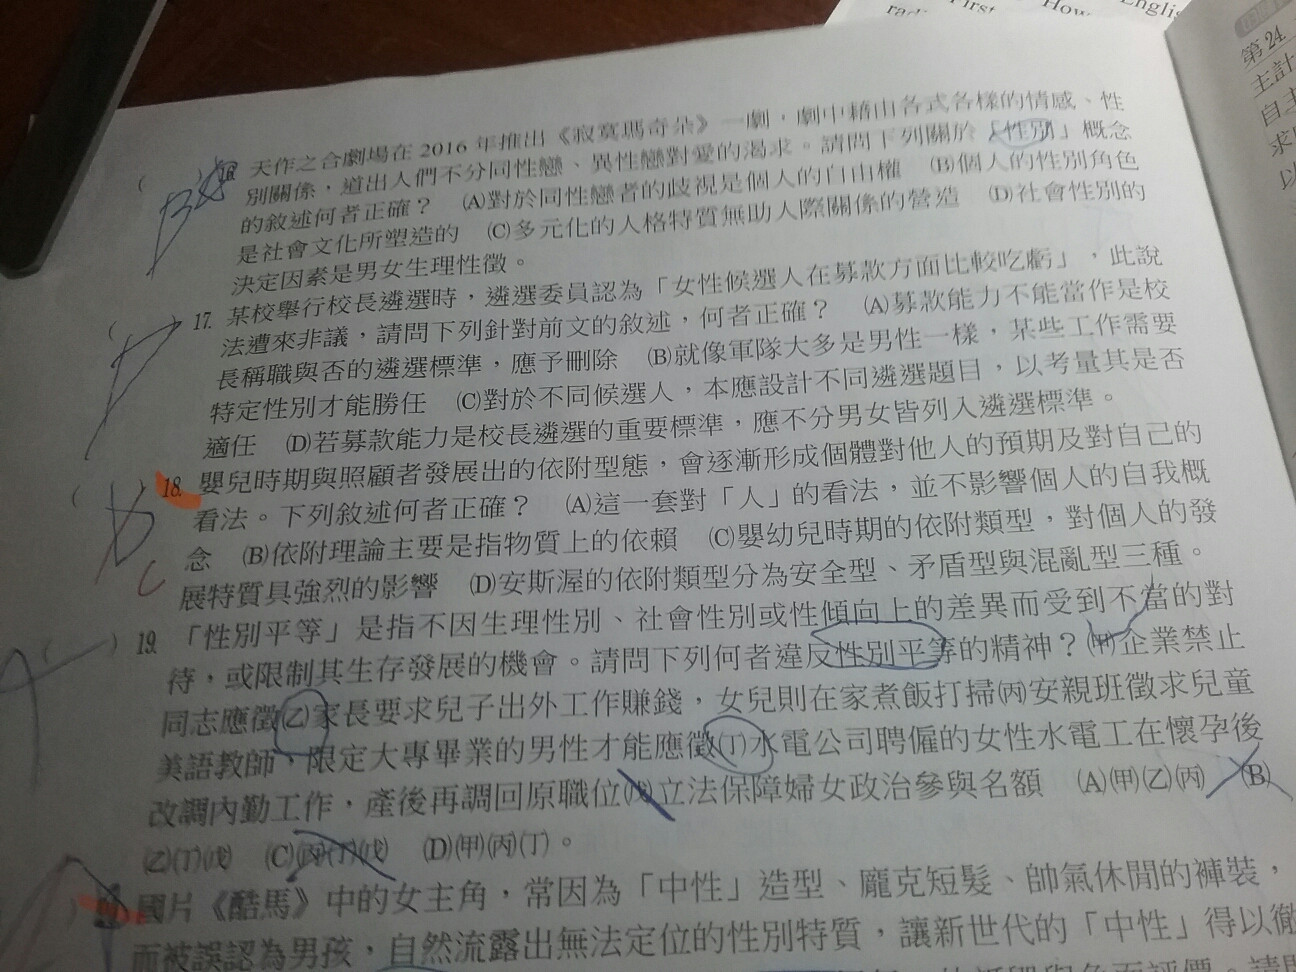 Englis
First
How
第24.
主計
自主
求
以
天作之合劇場在2016年推出《寂寞瑪奇朵》一劇，劇中藉由各式各樣的情感、性
別關係，道出人們不分同性戀、異性戀對愛的渴求。請問下列關於「性別」概念
的敘述何者正確？ (A)對於同性戀者的歧視是個人的自由權 (B)個人的性別角色
是社會文化所塑造的 (C)多元化的人格特質無助人際關係的營造 (D)社會性別的
決定因素是男女生理性徵。
B
17. 某校舉行校長遴選時，遴選委員認為「女性候選人在募款方面比較吃虧」，此說
法遭來非議，請問下列針對前文的敘述，何者正確？ (A)募款能力不能當作是校
長稱職與否的遴選標準，應予刪除 (B)就像軍隊大多是男性一樣，某些工作需要
特定性別才能勝任 (C)對於不同候選人，本應設計不同遴選題目，以考量其是否
適任 (D)若募款能力是校長遴選的重要標準，應不分男女皆列入遴選標準。
18. 嬰兒時期與照顧者發展出的依附型態，會逐漸形成個體對他人的預期及對自己的
看法。下列敘述何者正確？ (A)這一套對「人」的看法，並不影響個人的自我概
念 (B)依附理論主要是指物質上的依賴 (C)嬰幼兒時期的依附類型，對個人的發
展特質具強烈的影響 (D)安斯渥的依附類型分為安全型、矛盾型與混亂型三種。
C
19. 「性別平等」是指不因生理性別、社會性別或性傾向上的差異而受到不當的對
待，或限制其生存發展的機會。請問下列何者違反性別平等的精神？(甲)企業禁止
同志應徵(乙)家長要求兒子出外工作賺錢，女兒則在家煮飯打掃(丙)安親班徵求兒童
美語教師，限定大專畢業的男性才能應徵(丁)水電公司聘僱的女性水電工在懷孕後
改調內勤工作，產後再調回原職位(戊)立法保障婦女政治參與名額 (A)(甲)(乙)(丙) (B)
(乙)(丁)(戊) (C)(丙)(丁)(戊) (D)(甲)(丙)(丁)。
國片《酷馬》中的女主角，常因為「中性」造型、龐克短髮、帥氣休閒的褲裝，
而被誤認為男孩，自然流露出無法定位的性別特質，讓新世代的「中性」得以徹